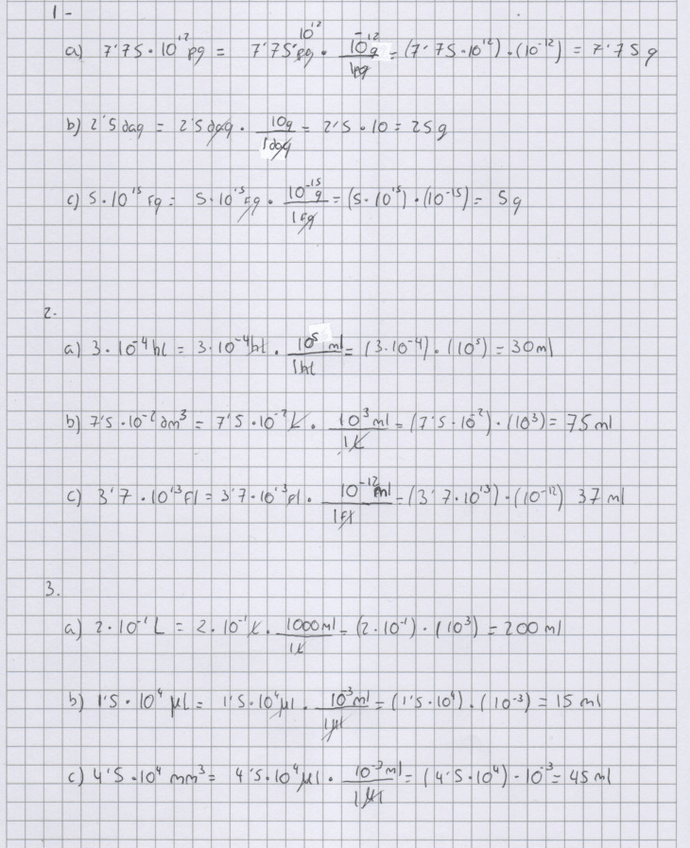 1-
a) 7'75·10¹² pg = 7'75·10¹² pg · 10⁻¹² g / 1pg = (7'75·10¹²)·(10⁻¹²) = 7'75 g
b) 2'5 dag = 2'5 dag · 10g / 1dag = 2'5·10 = 25g
c) 5·10¹⁵ fg = 5·10¹⁵ fg · 10⁻¹⁵ g / 1fg = (5·10¹⁵)·(10⁻¹⁵) = 5g
2.
a) 3·10⁻⁴ hl = 3·10⁻⁴ hl · 10⁵ ml / 1hl = (3·10⁻⁴)·(10⁵) = 30ml
b) 7'5·10⁻² dm³ = 7'5·10⁻² L · 10³ ml / 1L = (7'5·10⁻²)·(10³) = 75 ml
c) 3'7·10¹³ fl = 3'7·10¹³ fl · 10⁻¹² ml / 1fl = (3'7·10¹³)·(10⁻¹²) 37 ml
3.
a) 2·10⁻¹ L = 2·10⁻¹ L · 1000ml / 1L = (2·10⁻¹)·(10³) = 200 ml
b) 1'5·10⁴ μl = 1'5·10⁴ μl · 10⁻³ ml / 1μl = (1'5·10⁴)·(10⁻³) = 15 ml
c) 4'5·10⁴ mm³ = 4'5·10⁴ μl · 10⁻³ ml / 1μl = (4'5·10⁴)·10⁻³ = 45 ml